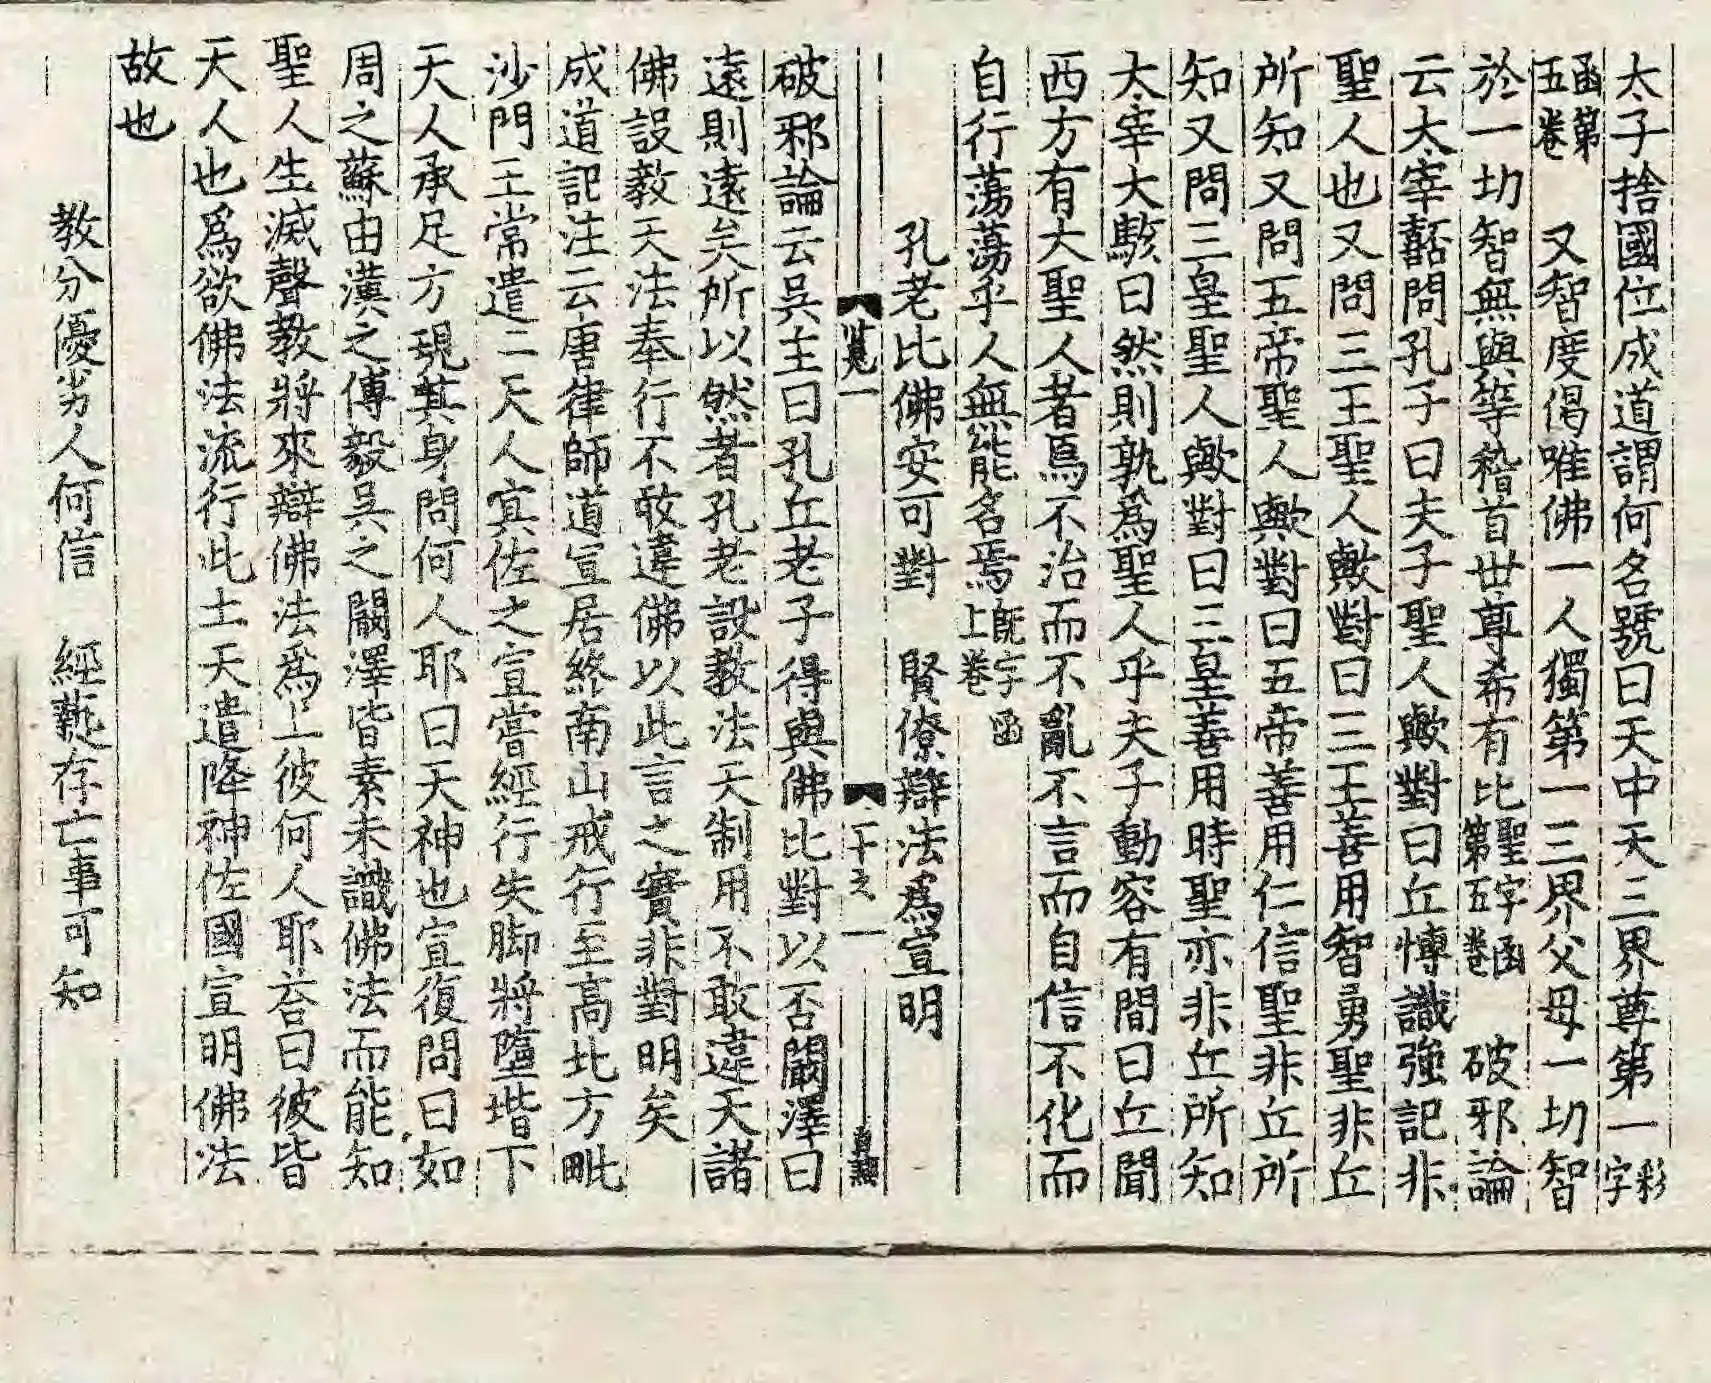 太子捨國位成道謂何名號曰天中天三界尊第一彩字
函第五卷　又智度偈唯佛一人獨第一三界父母一切智
於一切智無與等稽首世尊希有比聖字函第五卷　破邪論
云太宰嚭問孔子曰夫子聖人歟對曰丘愽識強記非
聖人也又問三王聖人歟對曰三王善用智勇聖非丘
所知又問五帝聖人歟對曰五帝善用仁信聖非丘所
知又問三皇聖人歟對曰三皇善用時聖亦非丘所知
太宰大駭曰然則孰爲聖人乎夫子動容有間曰丘聞
西方有大聖人者焉不治而不亂不言而自信不化而
自行蕩蕩乎人無能名焉既字函上卷
孔老比佛安可對　賢僚辯法爲宣明
一　下之一
破邪論云吳主曰孔丘老子得與佛比對以否闞澤曰
遠則遠矣所以然者孔老設教法天制用不敢違天諸
佛設教天法奉行不敢違佛以此言之實非對明矣
成道記注云唐律師道宣居終南山戒行至高北方毗
沙門王常遣二天人寘佐之宣嘗經行失脚將墮堦下
天人承足方現其身問何人耶曰天神也宣復問曰如
周之蘇由漢之傅毅吳之闞澤皆素未識佛法而能知
聖人生滅聲教將來辯佛法爲上彼何人耶荅曰彼皆
天人也爲欲佛法流行此土天遣降神佐國宣明佛法
故也
教分優劣人何信　經藝存亡事可知